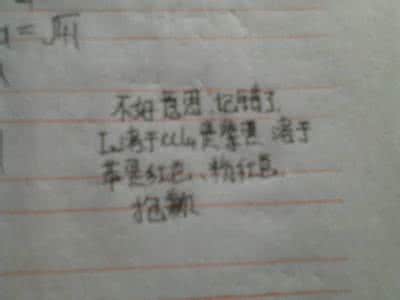 =√41
不好意思,记错了
I₂溶于CCl₄是紫色 溶于
苯是红色、粉红色.
抱歉